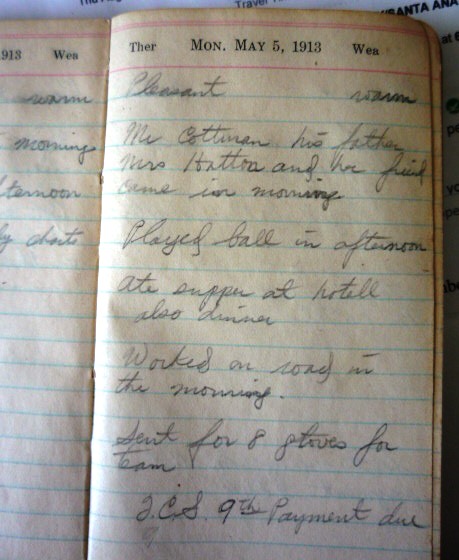 1913 Wea
warm
morning
afternoon
Ther MON. MAY 5, 1913 Wea
Pleasant warm
Mr Cottman his father
Mrs Hatton and her friend
came in morning
Played ball in afternoon
ate supper at hotell
also dinner
Worked on road in
the morning.
Sent for 8 gloves for
team
I.C.S. 9th Payment due
Travel
SANTA ANA